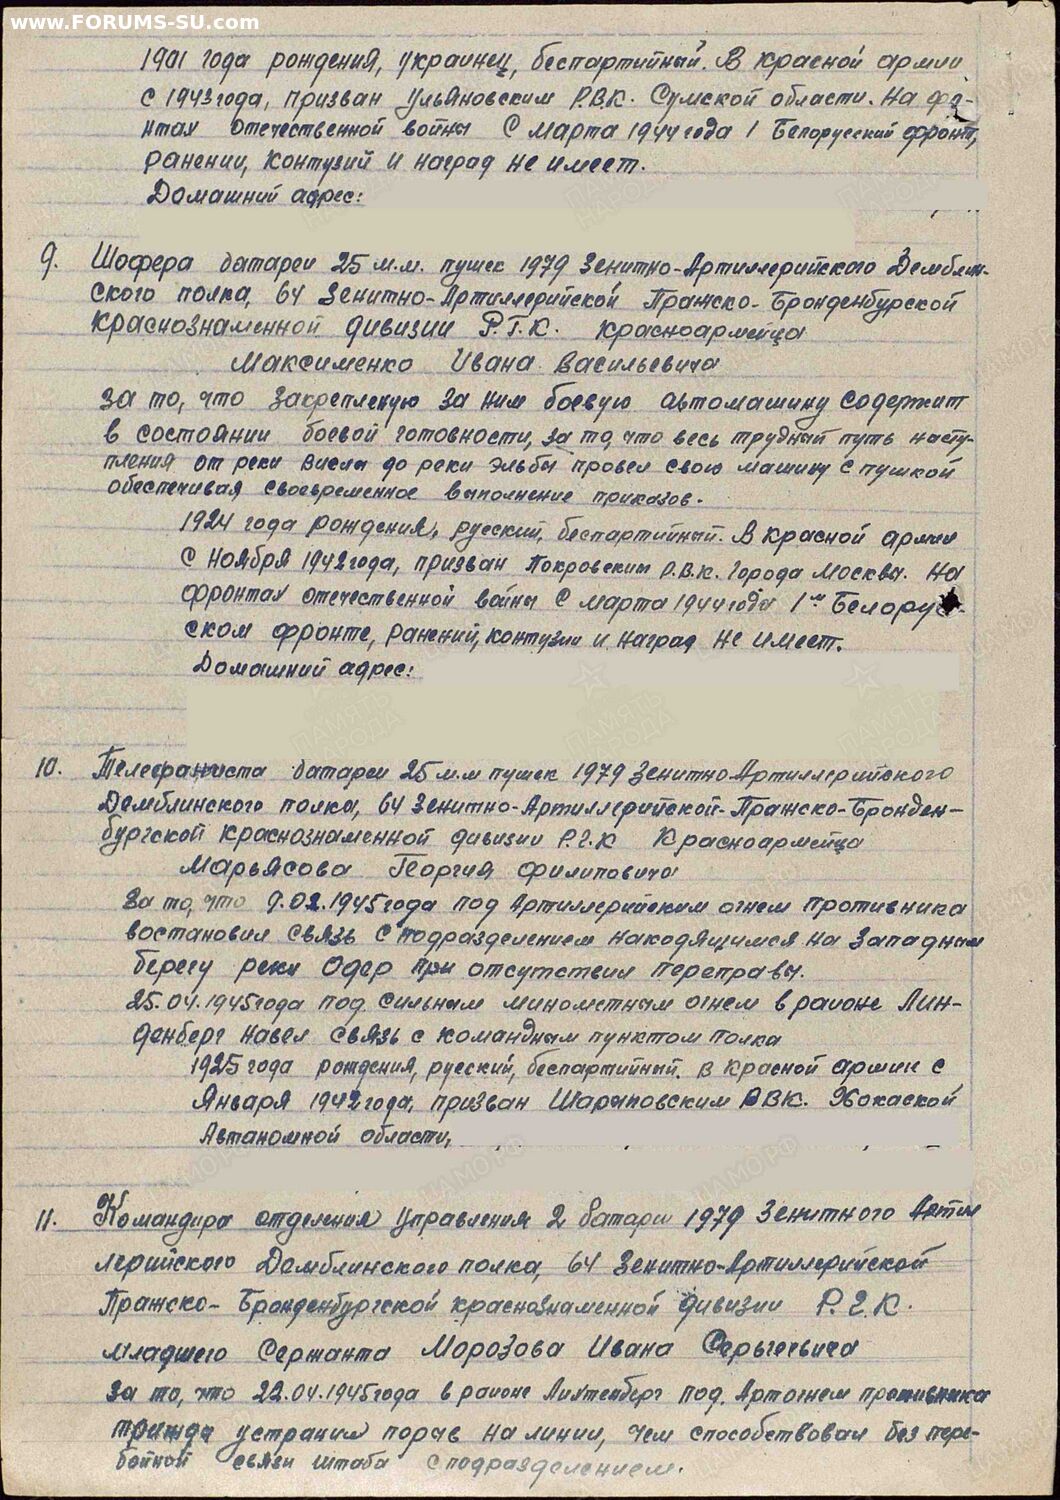 www.FORUMS-SU.com
1901 года рождения, украинец, беспартийный. В красной армии
с 1943 года, призван Ульяновским Р.В.К. Сумской области. На фро-
нтах отечественной войны с марта 1944 года 1 Белорусский фронт,
ранении, контузий и наград не имеет.
Домашний адрес:
9. Шофера батареи 25 м.м. пушек 1979 Зенитно-Артиллерийского Демблин-
ского полка, 64 Зенитно-Артиллерийской Пражско-Бронденбурской
краснознаменной дивизии Р.Г.К. красноармейца
Максименко Ивана Васильевича
за то, что закрепленую за ним боевую автомашину содержит
в состоянии боевой готовности, за то, что весь трудный путь насту-
пления от реки Висла до реки Эльбы провел свою машину с пушкой
обеспечивая своевременное выполнение приказов.
1924 года рождения, русский, беспартийный. В красной армии
с ноября 1942 года, призван Покровским Р.В.К. города Москвы. На
фронтах отечественной войны с марта 1944 года 1м Белорус-
ском фронте, ранений, контузии и наград не имеет.
Домашний адрес:
10. Телефаниста батареи 25 м.м пушек 1979 Зенитно-Артиллерийского
Демблинского полка, 64 Зенитно-Артиллерийской-Пражско-Бронден-
бургской краснознаменной дивизии Р.Г.К Красноармейца
Марьясова Георгия Филиповича
За то, что 9.02.1945 года под Артиллерийским огнем противника
востановил связь с подразделением находящимся на западным
берегу реки Одер при отсутствия переправы.
25.04.1945 года под сильным минометным огнем в районе Лин-
денберг навел связь с командным пунктом полка
1925 года рождения, русский, беспартийный. В красной армии с
Января 1942 года, призван Шарыповским РВК. Хокаской
Автаномной области,
11. Командира отделения управления 2 батареи 1979 Зенитного Артил
лерийского Демблинского полка, 64 Зенитно-Артиллерийской
Пражско-Бронденбургской краснознаменной дивизии Р.Г.К.
младшего Сержанта Морозова Ивана Серьгеевича
За то, что 22.04.1945 года в районе Лихтенберг под Артогнем противника
трижды устранил порыв на линии, чем способствовал без пере-
бойной связи штаба с подразделением.
ПАМЯТЬ НАРОДА
ПАМЯТЬ НАРОДА